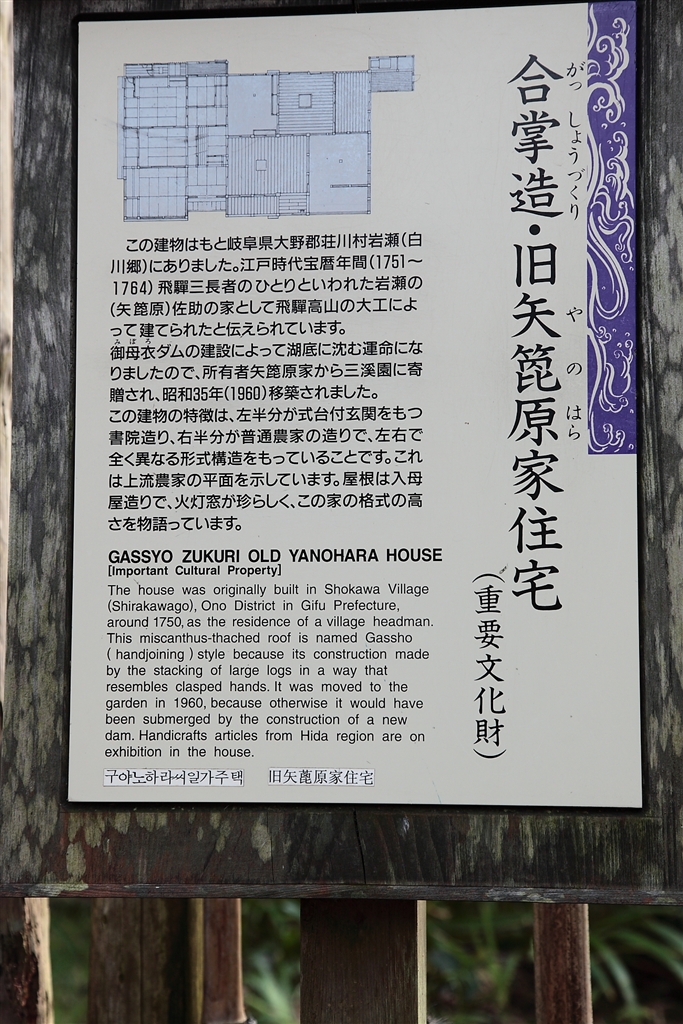 合掌造・旧矢箆原家住宅
がっしょうづくり やのはら
(重要文化財)
この建物はもと岐阜県大野郡荘川村岩瀬(白
川郷)にありました。江戸時代宝暦年間(1751~
1764)飛騨三長者のひとりといわれた岩瀬の
(矢箆原)佐助の家として飛騨高山の大工によ
って建てられたと伝えられています。
みぼろ
御母衣ダムの建設によって湖底に沈む運命にな
りましたので、所有者矢箆原家から三溪園に寄
贈され、昭和35年(1960)移築されました。
この建物の特徴は、左半分が式台付玄関をもつ
書院造り、右半分が普通農家の造りで、左右で
全く異なる形式構造をもっていることです。これ
は上流農家の平面を示しています。屋根は入母
屋造りで、火灯窓が珍らしく、この家の格式の高
さを物語っています。
GASSYO ZUKURI OLD YANOHARA HOUSE
[Important Cultural Property]
The house was originally built in Shokawa Village
(Shirakawago), Ono District in Gifu Prefecture,
around 1750, as the residence of a village headman.
This miscanthus-thached roof is named Gassho
( handjoining ) style because its construction made
by the stacking of large logs in a way that
resembles clasped hands. It was moved to the
garden in 1960, because otherwise it would have
been submerged by the construction of a new
dam. Handicrafts articles from Hida region are on
exhibition in the house.
구야노하라씨일가주택 旧矢蓖原家住宅